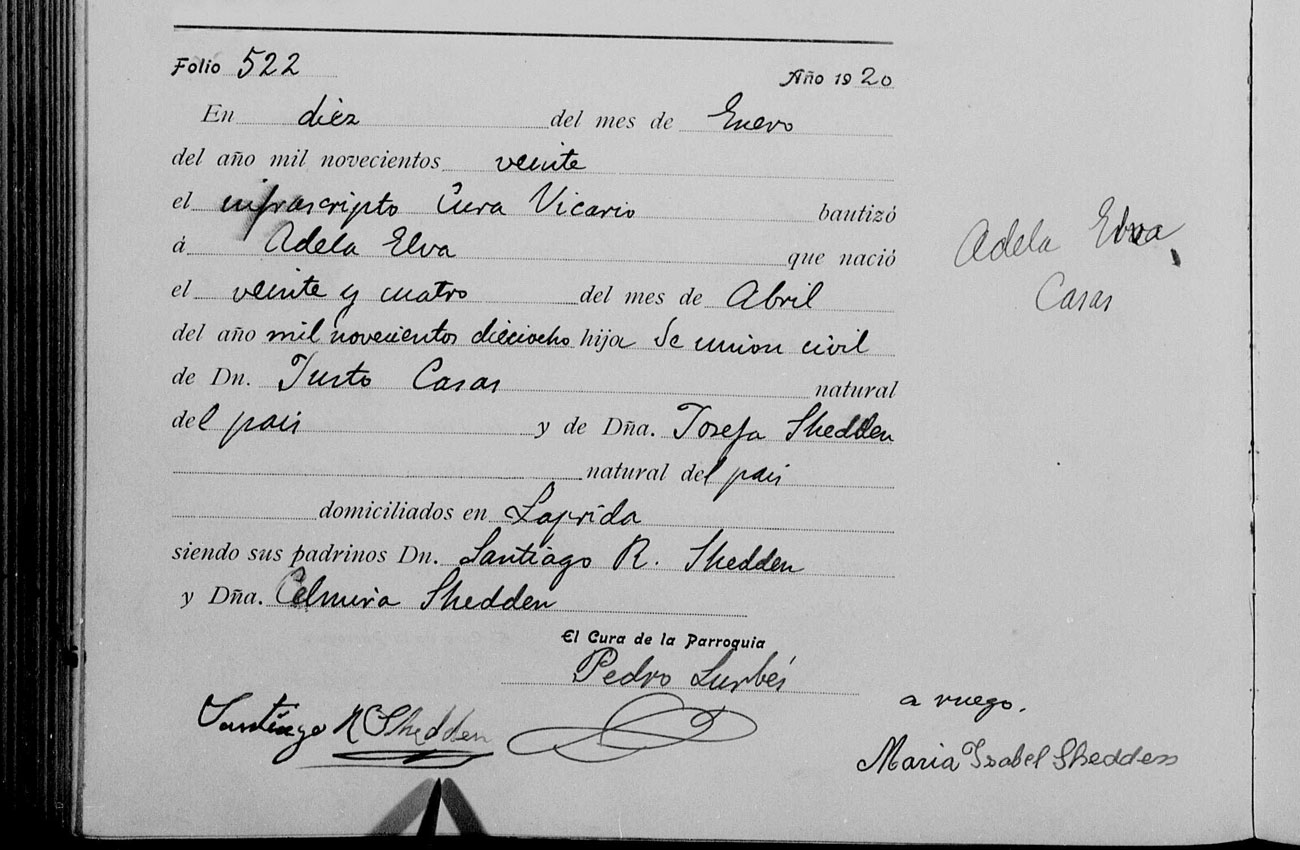 Folio 522 Año 1920
En diez del mes de Enero
del año mil novecientos veinte
el infrascripto Cura Vicario bautizó
á Adela Elva que nació
el veinte y cuatro del mes de Abril
del año mil novecientos dieciocho hija de union civil
de Dn. Justo Casas natural
del pais y de Dña. Josefa Shedden
natural del pais
domiciliados en Laprida
siendo sus padrinos Dn. Santiago R. Shedden
y Dña. Celmira Shedden
El Cura de la Parroquia
Pedro
Santiago R Shedden
a ruego.
Maria Isabel Shedden
Adela Elva
Casas